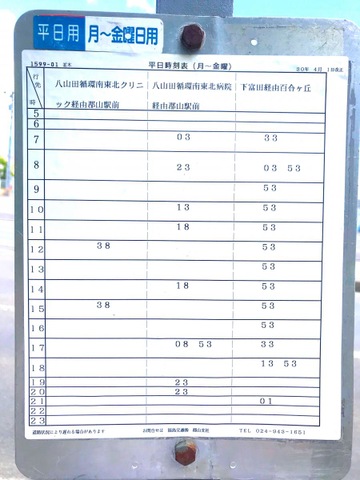 平日用 月～金曜日用
1599-01 平日時刻表（月～金曜） 30年 4月 1日改正
行先 時
八山田循環南東北クリニック経由郡山駅前
八山田循環南東北病院経由郡山駅前
下富田経由百合ヶ丘
5
6
7 03 33
8 23 03 53
9 53
10 13 53
11 18 53
12 38 53
13 53
14 18 53
15 38 53
16 53
17 08 53 33
18 13 53
19 23
20 23
21 01
22
23
道路状況により遅れる場合があります お問合せは 福島交通㈱ 郡山支社 TEL 024-943-1651